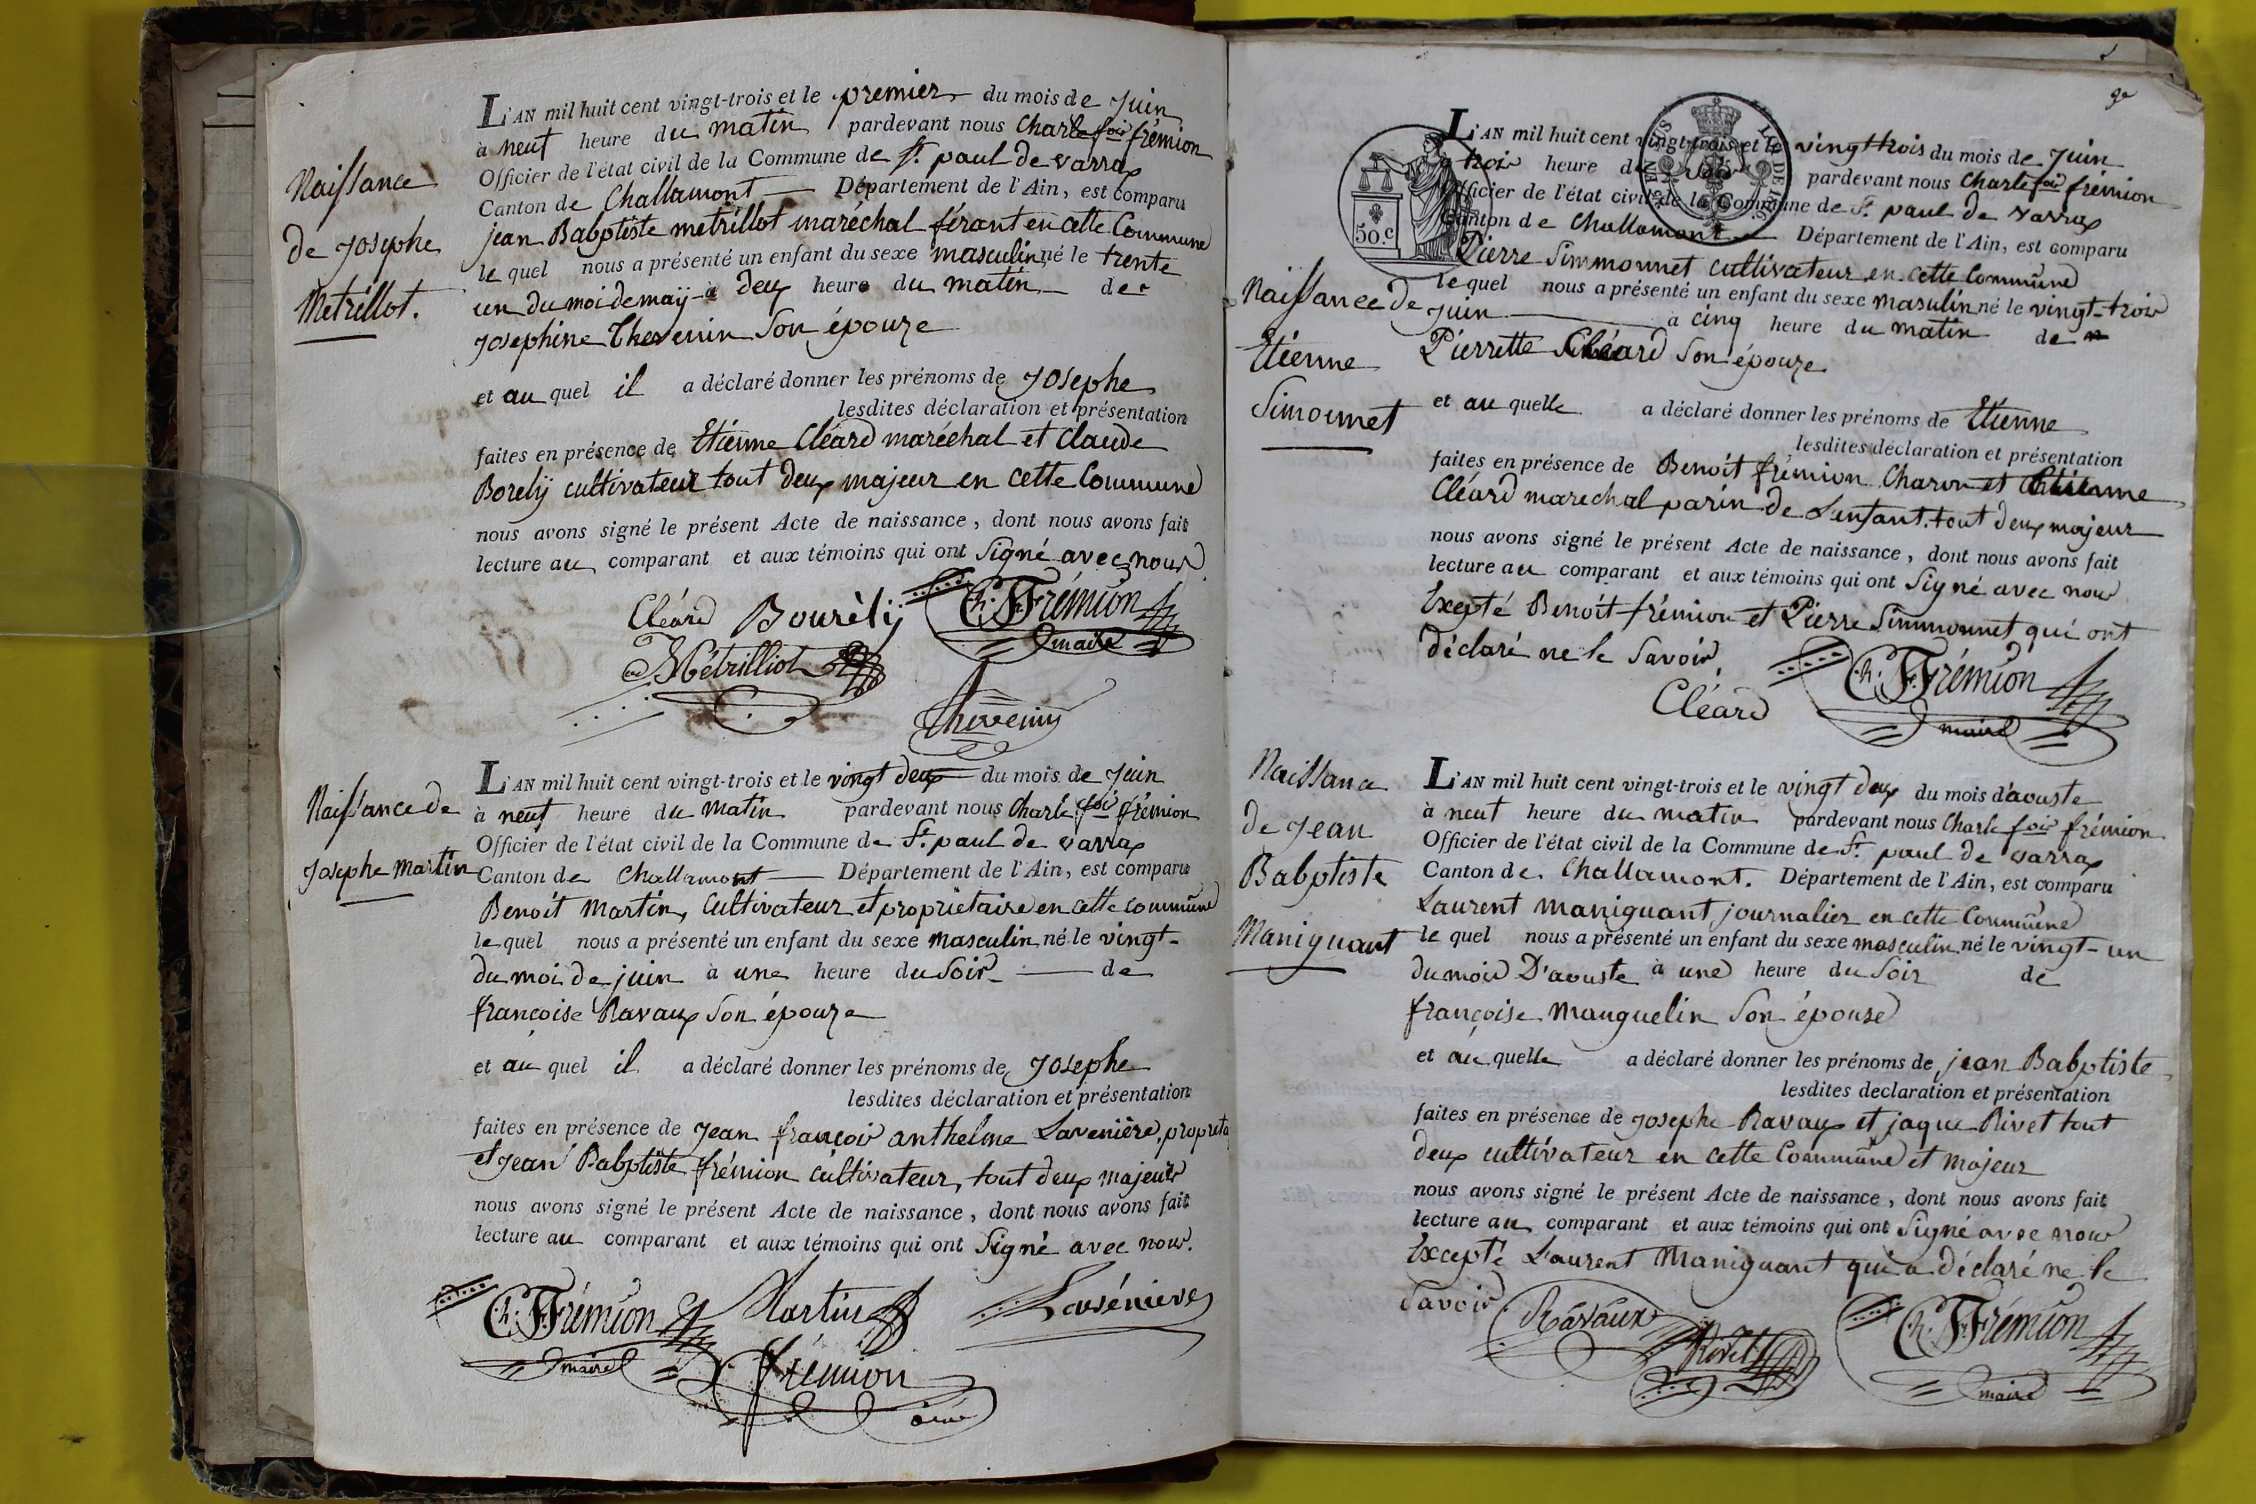 Naissance
de Josephe
Metrillot.
L'AN mil huit cent vingt-trois et le premier du mois de Juin
à neuf heure du matin pardevant nous Charle fois frémion
Officier de l'état civil de la Commune de St. paul de varrax
Canton de Challamont Département de l'Ain, est comparu
jean Babptiste metrillot maréchal férant en cette Commune
le quel nous a présenté un enfant du sexe masculin né le trente
un du moi de maÿ à deux heure du matin de
Josephine Thevenin Son épouze
et au quel il a déclaré donner les prénoms de Josephe
lesdites déclaration et présentation
faites en présence de Etienne Cléard maréchal et Claude
Borelÿ cultivateur tout deux majeur en cette Commune
nous avons signé le présent Acte de naissance, dont nous avons fait
lecture au comparant et aux témoins qui ont Signé avec nous
Cléard Bourèlÿ Ch. F. Frémion
maire
Métrilliot
Thevenin
Naissance de
Josephe Martin
L'AN mil huit cent vingt-trois et le vingt deux du mois de Juin
à neuf heure du matin pardevant nous Charle fois frémion
Officier de l'état civil de la Commune de St. paul de varrax
Canton de Challamont Département de l'Ain, est comparu
Benoit Martin, Cultivateur et propriétaire en cette commune
le quel nous a présenté un enfant du sexe masculin né le vingt-
du moi de juin à une heure du Soir de
françoise Ravaux Son épouze
et au quel il a déclaré donner les prénoms de Josephe
lesdites déclaration et présentation
faites en présence de Jean françois anthelme Lavenière, propreta
et Jean Babptiste frémion cultivateur, tout deux majeurs
nous avons signé le présent Acte de naissance, dont nous avons fait
lecture au comparant et aux témoins qui ont Signé avec nous.
Ch. F. Frémion Martin Lavénière
maire
frémion
9e
50.c
L'AN mil huit cent vingt-trois et le vingt trois du mois de Juin
trois heure du Soir pardevant nous Charle fois frémion
Officier de l'état civil de la Commune de St. paul de varrax
Canton de Challamont Département de l'Ain, est comparu
Pierre Simmonnet cultivateur en cette Commune
le quel nous a présenté un enfant du sexe masulin né le vingt-trois
Juin à cinq heure du matin de
Pierrette Cléard Son épouze
Naissance de
Etienne
Simonnet
et au quelle a déclaré donner les prénoms de Etienne
lesdites déclaration et présentation
faites en présence de Benoit frémion Charon et Etienne
Cléard marechal parin de L'enfant tout deux majeur
nous avons signé le présent Acte de naissance, dont nous avons fait
lecture au comparant et aux témoins qui ont Signé avec nous
Exepté Benoit frémion et Pierre Simmonnet qui ont
déclaré ne le Savoir.
Cléard Ch. F. Frémion
maire
Naissance
de Jean
Babptiste
Maniguant
L'AN mil huit cent vingt-trois et le vingt deux du mois d'aouste
à neuf heure du matin pardevant nous Charle fois frémion
Officier de l'état civil de la Commune de St. paul de varrax
Canton de Challamont. Département de l'Ain, est comparu
Laurent maniguant journalier en cette Commune
le quel nous a présenté un enfant du sexe masculin né le vingt-un
du mois D'aouste à une heure du Soir de
françoise Mauguelin Son épouse
et au quelle a déclaré donner les prénoms de jean Babptiste
lesdites declaration et présentation
faites en présence de Josephe Ravaux et jaque Rivet tout
deux cultivateur en cette Commune et majeur
nous avons signé le présent Acte de naissance, dont nous avons fait
lecture au comparant et aux témoins qui ont Signé avec nous
Excepté Laurent Maniguant qui a déclaré ne le
Savoir
Ravaux Rivet Ch. F. Frémion
maire